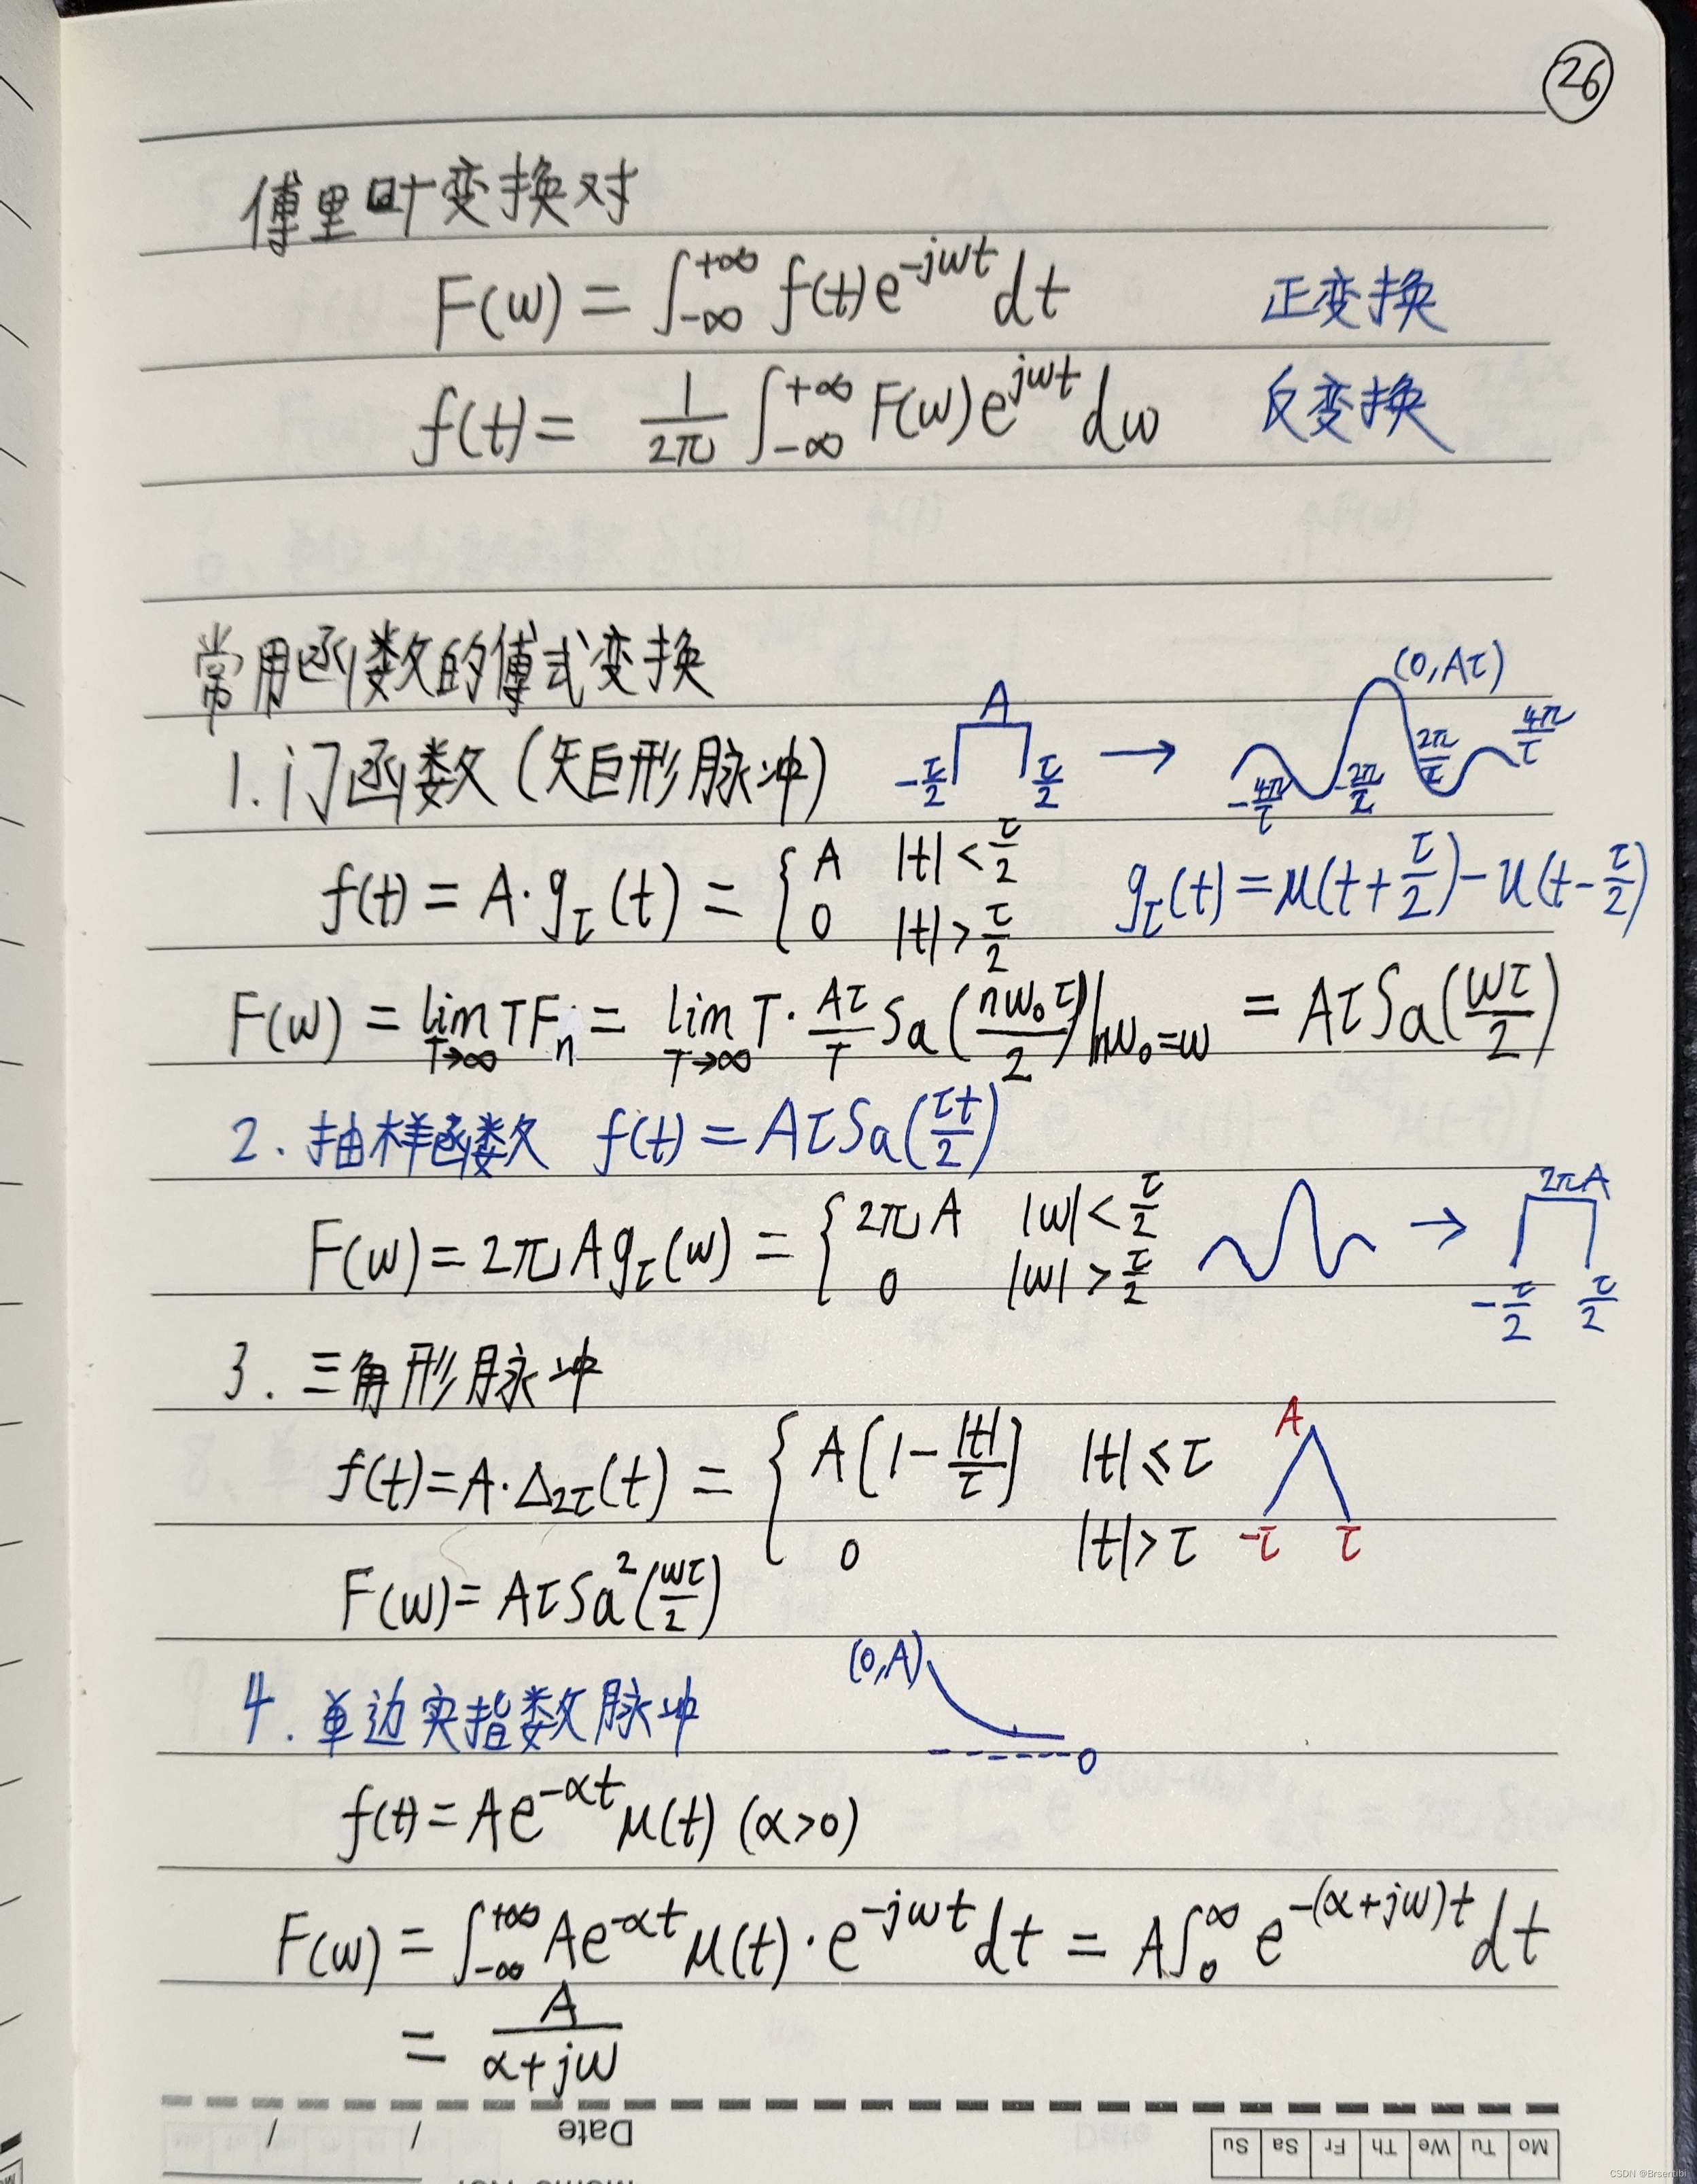 26
傅里叶变换对
F(ω) = ∫_{-∞}^{+∞} f(t)e^{-jωt}dt 正变换
f(t) = \frac{1}{2π} ∫_{-∞}^{+∞} F(ω)e^{jωt}dω 反变换
常用函数的傅式变换
1. 门函数(矩形脉冲) A -\frac{τ}{2} \frac{τ}{2} → (0,Aτ) -\frac{4π}{τ} -\frac{2π}{τ} \frac{2π}{τ} \frac{4π}{τ}
f(t) = A·g_τ(t) = { A |t|<\frac{τ}{2} g_τ(t) = μ(t+\frac{τ}{2}) - u(t-\frac{τ}{2})
0 |t|>\frac{τ}{2}
F(ω) = \lim_{T→∞} TF_n = \lim_{T→∞} T·\frac{Aτ}{T} Sa(\frac{nω_0τ}{2})|_{nω_0=ω} = AτSa(\frac{ωτ}{2})
2. 抽样函数 f(t) = AτSa(\frac{τt}{2})
F(ω) = 2πAg_τ(ω) = { 2πA |ω|<\frac{τ}{2} → 2πA -\frac{τ}{2} \frac{τ}{2}
0 |ω|>\frac{τ}{2}
3. 三角形脉冲
f(t) = A·Δ_{2τ}(t) = { A[1-\frac{|t|}{τ}] |t|⩽τ A
0 |t|>τ -τ τ
F(ω) = AτSa^2(\frac{ωτ}{2})
4. 单边实指数脉冲 (0,A) 0
f(t) = Ae^{-αt}μ(t) (α>0)
F(ω) = ∫_{-∞}^{+∞} Ae^{-αt}μ(t)·e^{-jωt}dt = A∫_0^∞ e^{-(α+jω)t}dt
= \frac{A}{α+jω}
Date / /
Mo Tu We Th Fr Sa Su
Memo No.
CSDN @Brsentibi